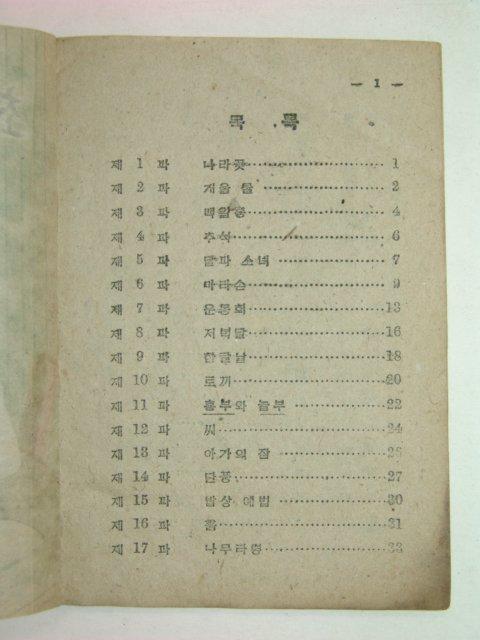 — 1 —
목 록
제 1 과 나라꽃 1
제 2 과 개울 물 2
제 3 과 백일홍 4
제 4 과 추석 6
제 5 과 달과 소녀 7
제 6 과 마라손 9
제 7 과 운동회 13
제 8 과 저녁달 16
제 9 과 한글날 18
제 10 과 토끼 20
제 11 과 흥부와 놀부 22
제 12 과 씨 24
제 13 과 아가의 잠 26
제 14 과 단풍 27
제 15 과 밥상 예법 30
제 16 과 31
제 17 과 나무타령 33